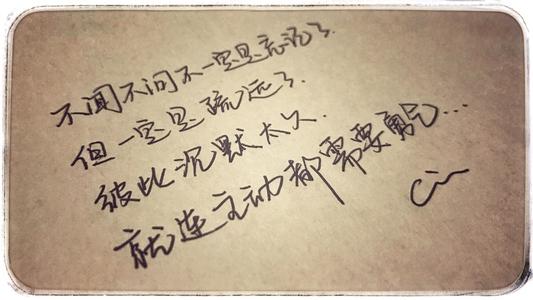 不闻不问不一定是忘记了.
但一定是疏远了.
彼此沉默太久.
就连主动都需要勇气...